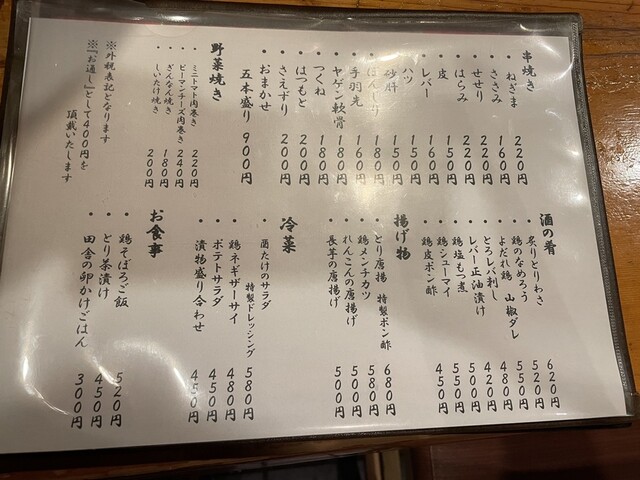 串焼き
・ねぎま 220円
・ささみ 160円
・せせり 220円
・はらみ 220円
・皮 150円
・レバー 160円
・ハツ 150円
・砂肝 150円
・ぼんじり 180円
・手羽先 160円
・ヤゲン軟骨 180円
・つくね 180円
・はつもと 200円
・さえずり 200円
・おまかせ
五本盛り 900円
野菜焼き
・ミニトマト肉巻き 220円
・ピーマンチーズ肉巻き 240円
・ぎんなん焼き 180円
・しいたけ焼き 200円
※外税表記となります
※『お通し』として400円を
頂戴いたします
酒の肴
・炙りとりわさ 620円
・鶏のなめろう 520円
・よだれ鶏 山椒ダレ 480円
・とろレバ刺し 420円
・レバー正油漬け 500円
・鶏塩もつ煮 550円
・鶏シューマイ
・鶏皮ポン酢 450円
揚げ物
・とり唐揚 特製ポン酢 680円
・鶏メンチカツ 580円
・れんこんの唐揚げ 500円
・長芋の唐揚げ 500円
冷菜
・菌たけのサラダ
特製ドレッシング 580円
・鶏ネギザーサイ 480円
・ポテトサラダ 450円
・漬物盛り合わせ 450円
お食事
・鶏そぼろご飯 520円
・とり茶漬け 450円
・田舎の卵かけごはん 300円